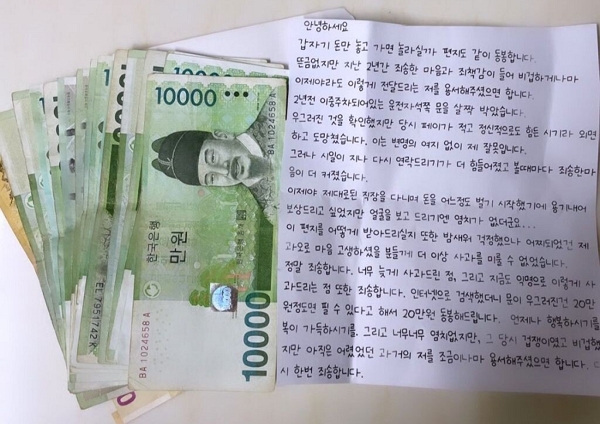 안녕하세요
갑자기 돈만 놓고 가면 놀라실까 편지도 같이 동봉합니다.
뜬금없지만 지난 2년간 죄송한 마음과 죄책감이 들어 비겁하게나마
이제야라도 이렇게 전달드리는 저를 용서해주셨으면 합니다.
2년전 이중주차되어있는 운전자석쪽 문을 살짝 박았습니다.
우그러진 것을 확인했지만 당시 페이가 적고 정신적으로도 힘든 시기라 외면
하고 도망쳤습니다. 이는 변명의 여지 없이 제 잘못입니다.
그러나 시일이 지나 다시 연락드리기가 더 힘들어졌고 볼때마다 죄송한마
음이 더 커졌습니다.
이제야 제대로된 직장을 다니며 돈을 어느정도 벌기 시작했기에 용기내어
보상드리고 싶었지만 얼굴을 보고 드리기엔 염치가 없더군요...
이 편지를 어떻게 받아드리실지 또한 밤새워 걱정했으나 어찌되었건 제
과오로 마음 고생하셨을 분들께 더 이상 사과를 미룰 수 없었습니다.
정말 죄송합니다. 너무 늦게 사과드린 점, 그리고 지금도 익명으로 이렇게 사
과드리는 점 또한 죄송합니다. 인터넷으로 검색했더니 문이 우그러진건 20만
원정도면 필 수 있다고 해서 20만원 동봉해드립니다. 언제나 행복하시기를
복이 가득하시기를, 그리고 너무너무 염치없지만, 그 당시 겁쟁이였고 비겁했
지만 아직은 어렸었던 과거의 저를 조금이나마 용서해주셨으면 합니다. 다
시 한번 죄송합니다.
10000
BA 1024658 A
한국은행
만원
10000
BA 1024658 A
10000